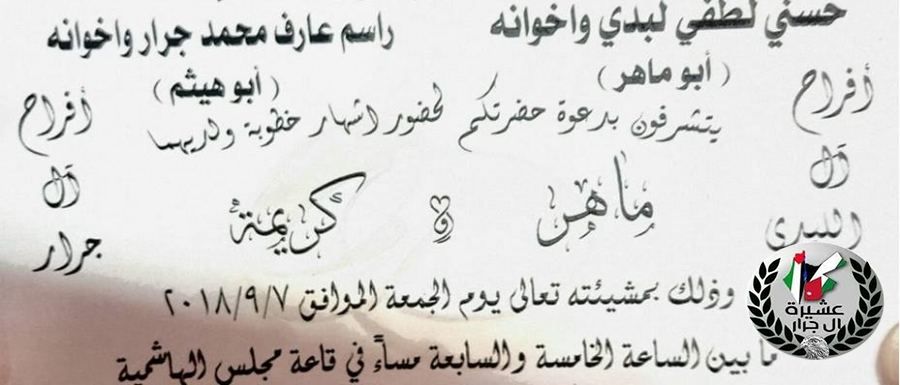 حسني لطفي لبدي واخوانه
راسم عارف محمد جرار واخوانه
(أبو ماهر)
(أبو هيثم)
أفراح
آل
اللبدي
أفراح
آل
جرار
يتشرفون بدعوة حضرتكم لحضور اشهار خطوبة ولديهما
ماهر و كريمة
وذلك بمشيئته تعالى يوم الجمعة الموافق ٢٠١٨/٩/٧
ما بين الساعة الخامسة والسابعة مساءً في قاعة مجلس الهاشمية
عشيرة
ال جرار